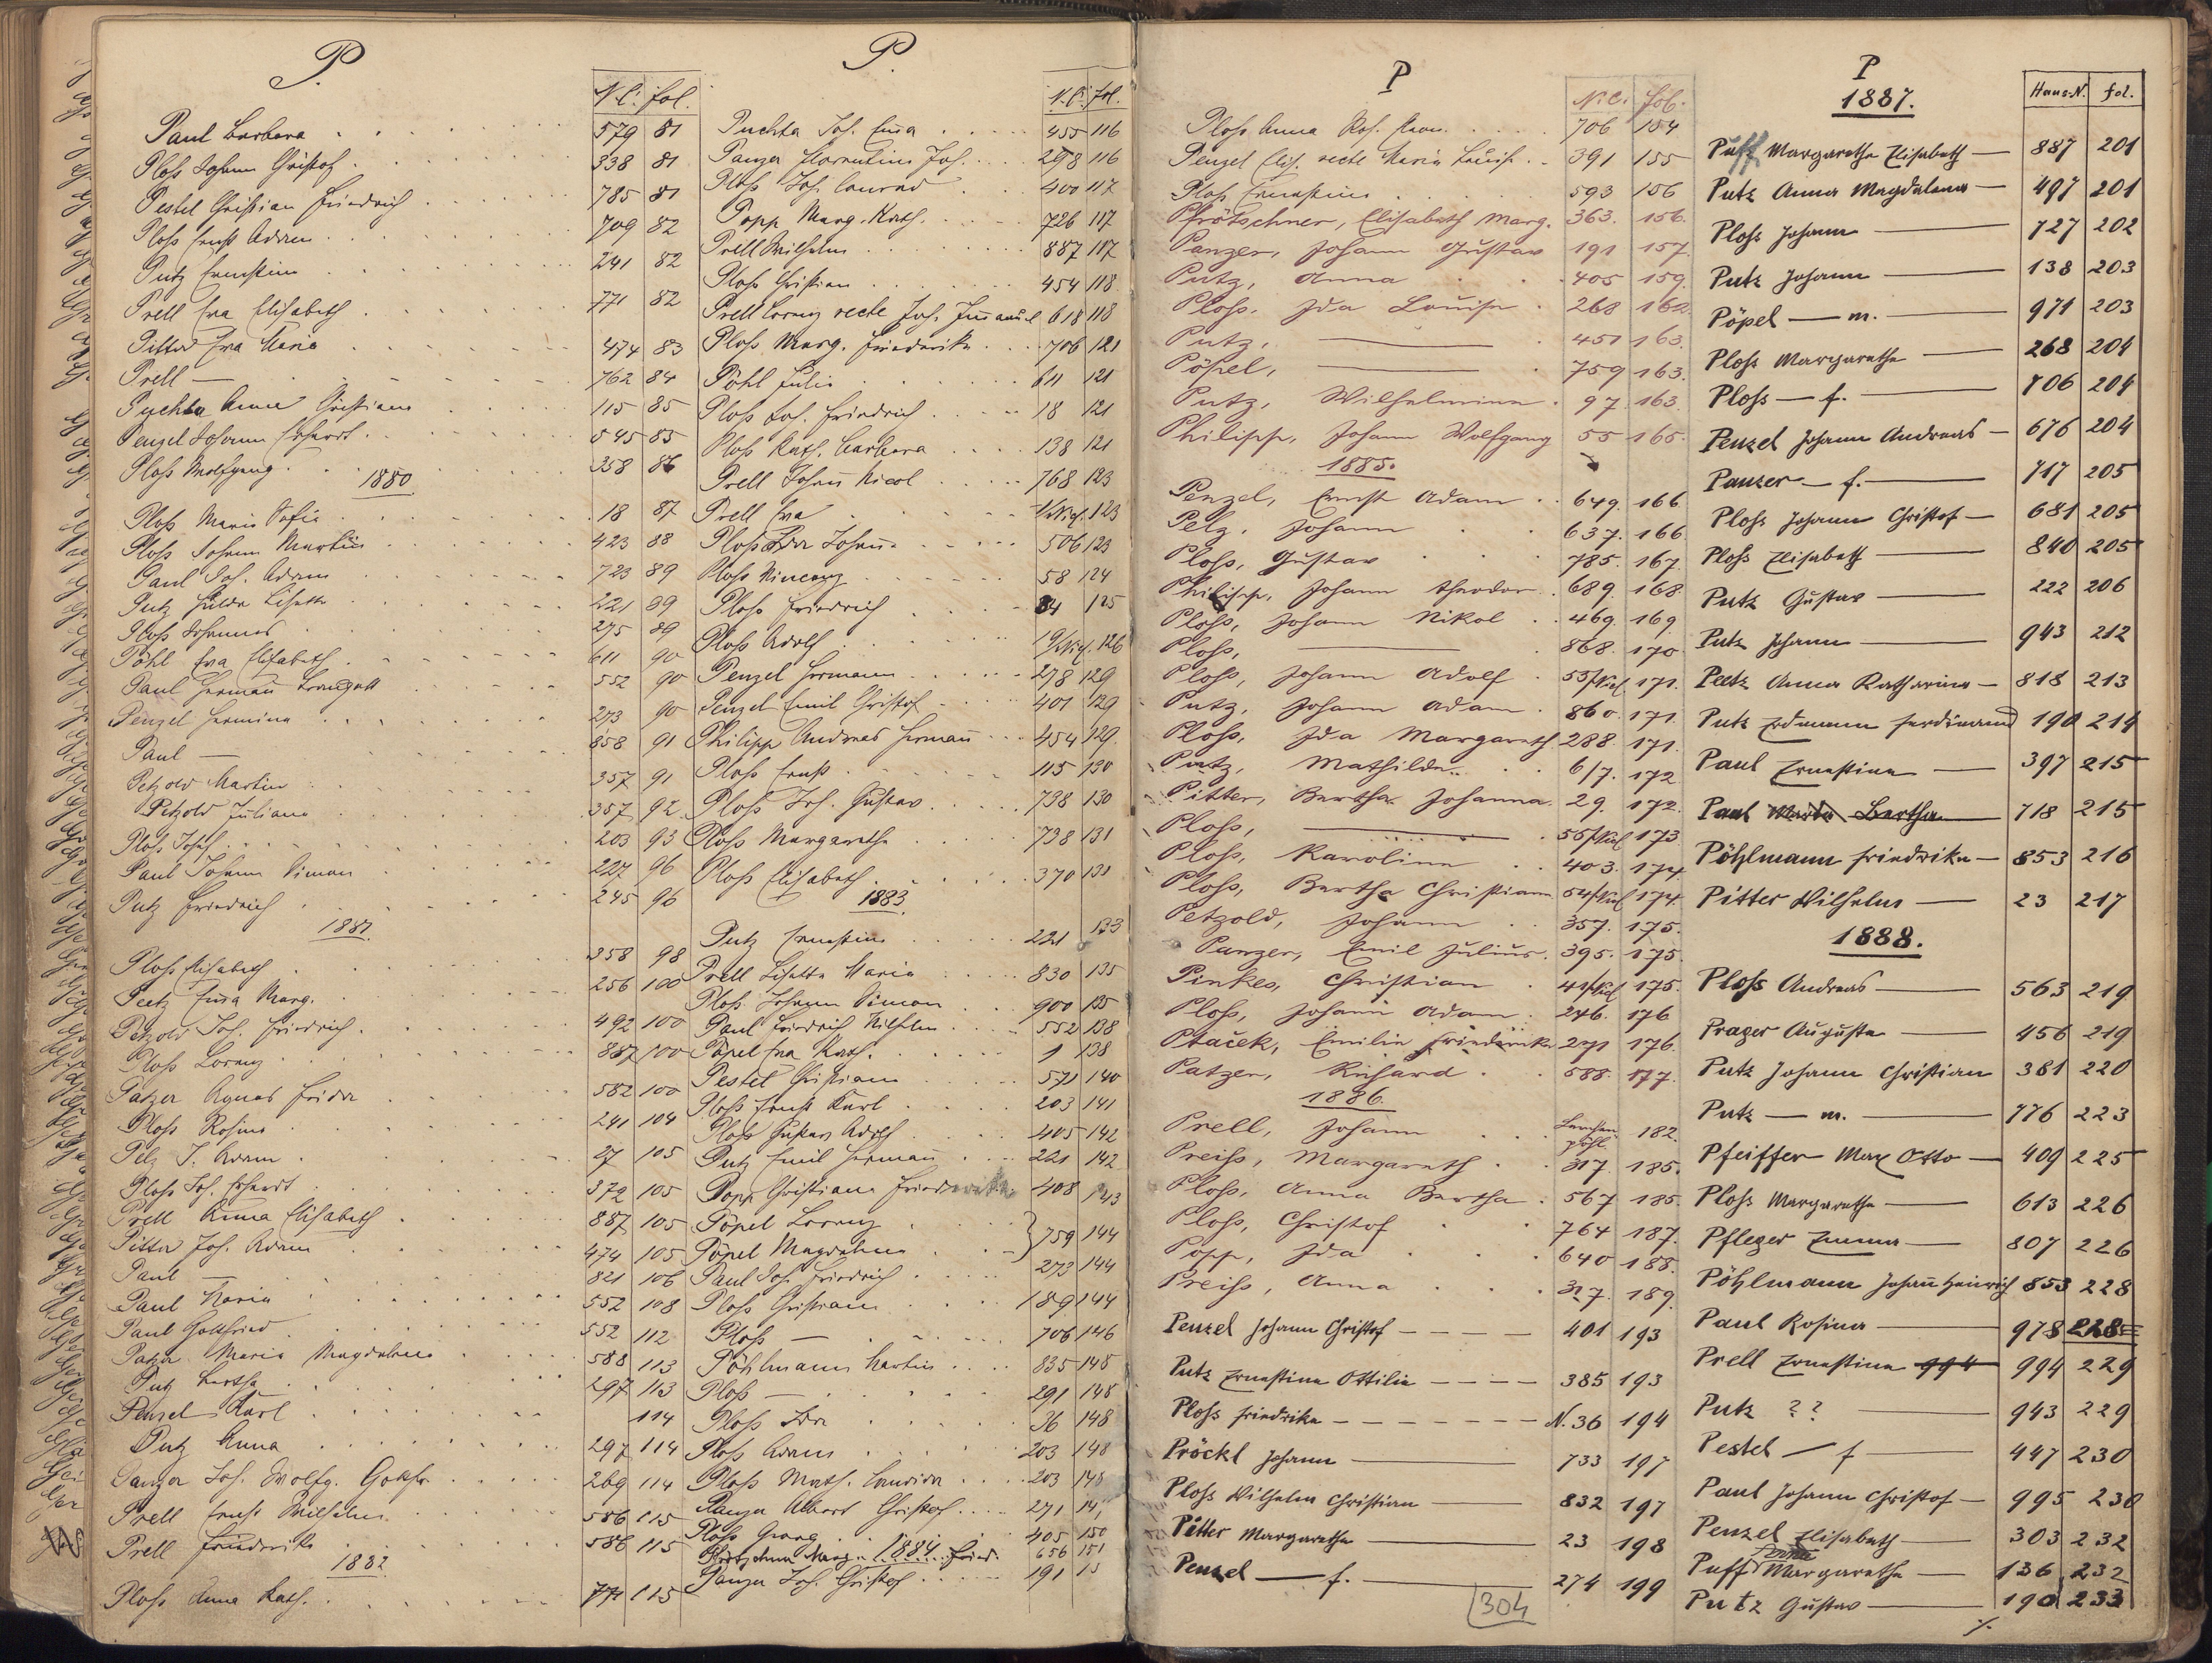 P.
N.C. fol.
Paul Barbara 579 81
Ploß Johann Christof 338 81
Pestel Christian Friedrich 785 81
Ploß Ernst Adam 709 82
Putz Ernestine 241 82
Prell Eva Elisabeth 771 82
Pitter Eva Maria 474 83
Prell — 762 84
Puchta Anna Christiana 115 85
Penzel Johann Erhardt 545 85
Ploß Wolfgang 358 86
1880
Ploß Maria Sofie 18 87
Ploß Johann Martin 423 88
Paul Joh. Adam 723 89
Putz Hulda Lisette 221 89
Ploß Johannes 275 89
Pöhl Eva Elisabeth 611 90
Paul Hermann 552 90
Penzel Hermine 273 90
Paul — 858 91
Petzold Martin 357 91
Petzold Juliana 357 92
Ploß Josef 203 93
Paul Johann Simon 227 96
Putz Friedrich 245 96
1881
Ploß Elisabeth 358 98
Peetz Eva Marg. 256 100
Petzold Joh. Friedrich 492 100
Ploß Lorenz 887 100
Patzer Agnes Frida 582 100
Ploß Rosina 241 104
Pelz J. Adam 27 105
Ploß Joh. Erhardt 372 105
Prell Anna Elisabeth 887 105
Pitter Joh. Adam 474 105
Paul — 821 106
Paul Maria 552 108
Paul Gottfried 552 112
Patzer Maria Magdalena 588 113
Putz Bertha 297 113
Penzel Karl 114
Putz Anna 297 114
Panzer Joh. Wolfg. Gottfr. 269 114
Prell Ernst Wilhelm 586 115
Prell Friederike 586 115
1882
Ploß Anna Kath. 771 115
P.
N.C. fol.
Puchta Joh. Eva 455 116
Panzer Florentine Joh. 298 116
Ploß Joh. Conrad 400 117
Popp Marg. Kath. 726 117
Prell Wilhelm 887 117
Ploß Christian 454 118
Prell Lorenz recte Joh. Immanuel 618 118
Ploß Marg. Friederike 706 121
Pöhl Julie 611 121
Ploß Joh. Friedrich 18 121
Ploß Kath. Barbara 138 121
Prell Johann Nicol 768 123
Prell Eva 123
Ploß Eva Johann 506 123
Ploß Vincenz 58 124
Ploß Friedrich 84 125
Ploß Adolf 126
Penzel Hermann 278 129
Penzel Emil Christof 401 129
Philipp Andreas Hermann 454 129
Ploß Ernst 115 130
Ploß Joh. Gustav 738 130
Ploß Margaretha 738 131
Ploß Elisabeth 370 131
1883
Putz Ernestine 221 133
Prell Lisette Maria 830 135
Ploß Johann Simon 900 135
Paul Friedrich Wilhelm 552 138
Pöpel Eva Kath. 1 138
Pestel Christiana 571 140
Ploß Ernst Karl 203 141
Ploß Gustav Adolf 405 142
Putz Emil Hermann 221 142
Popp Christiana Friederike 408 143
Pöpel Lorenz
Pöpel Magdalena } 759 144
Paul Joh. Friedrich 273 144
Ploß Christiana 189 144
Ploß — 706 146
Pöhlmann Martin 835 148
Ploß — 291 148
Ploß Ida 36 148
Ploß Adam 203 148
Ploß Math. Candida 203 148
Panzer Albert Christof 271
Ploß Georg 405 150
1884
656 151
Panzer Joh. Christof 191
P
N.C. fol.
Ploß Anna Ros. 706 154
Penzel Elis. recte Maria Louise 391 155
Ploß Ernestine 593 156
Pfrötschner, Elisabeth Marg. 363. 156.
Panzer, Johann Gustav 191 157
Putz, Anna 405 159.
Ploß, Ida Louise 268 162
Putz, — 451 163.
Pöpel, — 759 163.
Putz, Wilhelmine 97. 163
Philipp, Johann Wolfgang 55 165.
1885.
Penzel, Ernst Adam 649. 166
Pelz, Johann 637. 166.
Ploß, Gustav 785. 167.
Philipp, Johann Theodor 689. 168
Ploß, Johann Nikol 469. 169
Ploß, — 868. 170
Ploß, Johann Adolf 55/Nied 171.
Putz, Johann Adam 860. 171.
Ploß, Ida Margareth 288. 171.
Putz, Mathilde 617. 172
Pitter, Bertha Johanna 29. 172.
Ploß, — 173
Ploß, Karoline 403. 174.
Ploß, Bertha Christiana 174.
Petzold, Johann 357. 175.
Panzer, Emil Julius 395. 175.
Pinkes, Christian 175.
Ploß, Johann Adam 246. 176
Ptaček, Emilie Friederike 271 176.
Patzer, Richard 588. 177.
1886.
Prell, Johann Lerchenpöhl 182.
Preiß, Margareth 317. 185.
Ploß, Anna Bertha 567 185.
Ploß, Christof 764 187.
Popp, Ida 640 188.
Preiß, Anna 317. 189.
Penzel Johann Christof 401 193
Putz Ernestine Ottilie 385 193
Ploß Friedrike N. 36 194
Pröckl Johann 733 197
Ploß Wilhelm Christian 832 197
Pitter Margaretha 23 198
Penzel — f. 274 199
304
P
1887.
Haus-N. fol.
Puff Margaretha Elisabeth — 887 201
Putz Anna Magdalena — 497 201
Ploß Johann — 727 202
Putz Johann — 138 203
Pöpel — m. 971 203
Ploß Margaretha — 268 204
Ploß — f. — 706 204
Penzel Johann Andreas — 676 204
Panzer — f. — 717 205
Ploß Johann Christof — 681 205
Ploß Elisabeth — 840 205
Putz Gustav — 222 206
Putz Johann — 943 212
Peetz Anna Katharina — 818 213
Putz Erdmann Ferdinand 190 214
Paul Ernestine — 397 215
Paul Maria Bertha 718 215
Pöhlmann Friedrike — 853 216
Pitter Wilhelm — 23 217
1888.
Ploß Andreas — 563 219
Prager Auguste — 456 219
Putz Johann Christian 381 220
Putz — m. — 776 223
Pfeiffer Max Otto — 409 225
Ploß Margaretha — 613 226
Pfleger Emma — 807 226
Pöhlmann Johann Heinrich 853 228
Paul Rosina — 978 228
Prell Ernestine 994 994 229
Putz ?? — 943 229
Pestel — f — 447 230
Paul Johann Christof — 995 230
Penzel Elisabeth — 303 232
Puff Margaretha — 136 232
Putz Gustav — 190 233